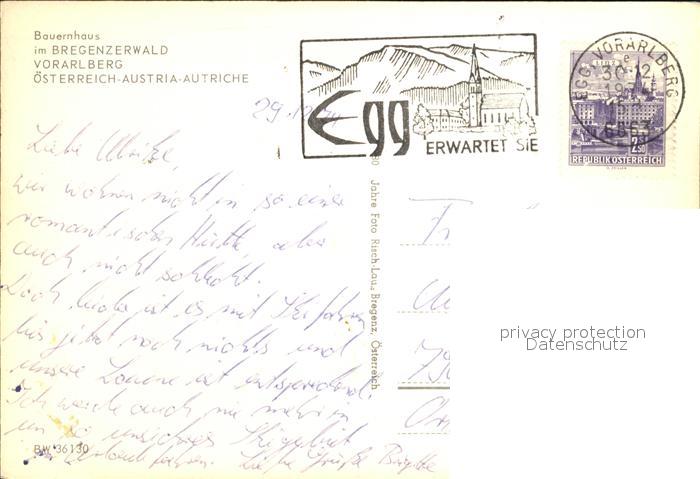 Bauernhaus
im BREGENZERWALD
VORARLBERG
ÖSTERREICH-AUSTRIA-AUTRICHE
Egg
ERWARTET SIE
EGG, VORARLBERG
LINZ
2.50
REPUBLIK ÖSTERREICH
29.12.
Liebe Ulrike,
wir wohnen nicht in so einer
romantischen Hütte, aber
auch nicht schlecht.
Doch leider ist es mit Skifahren
bis jetzt noch nichts und
unsere Laune ist entsprechend.
Ich werde auch nie mehr in
ein so unsicheres Skigebiet
in Urlaub fahren. Liebe Grüße Birgitte
BW 36130
Jahre Foto Risch-Lau, Bregenz, Österreich
Fr
privacy protection
Datenschutz